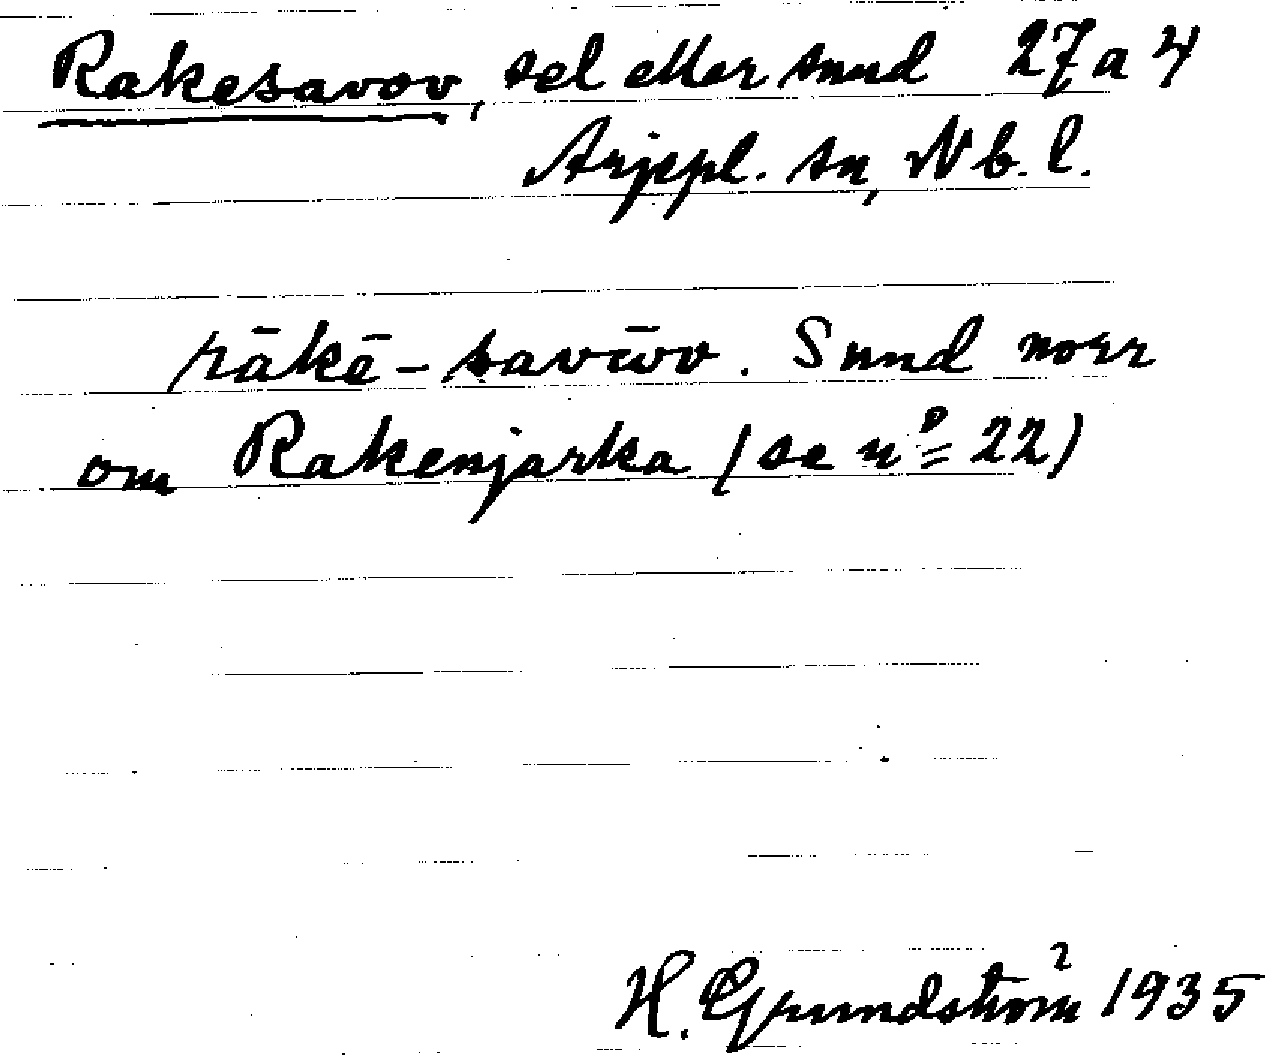 Rakesavov, sel eller sund 27 a 4
Arjepl. sn, Nb. l.
rākē-savūov. Sund norr
om Rakenjarka (se nº 22)
H. Grundström 1935